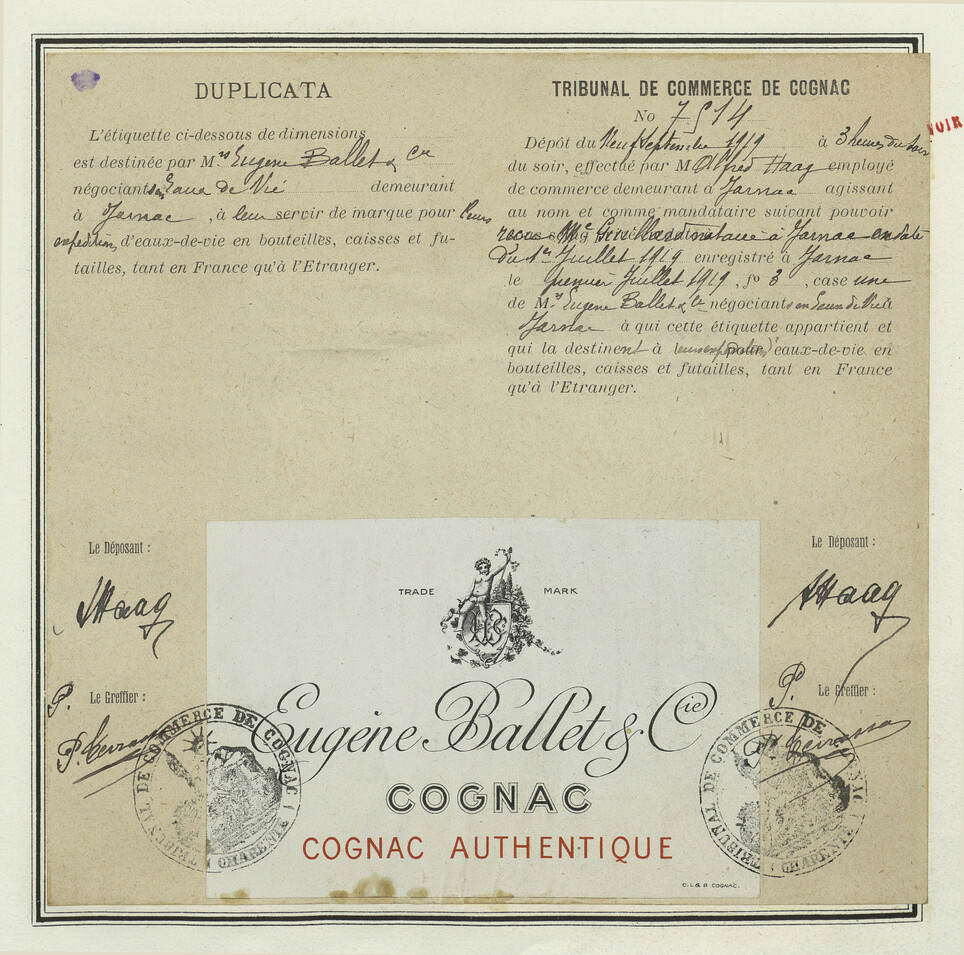 DUPLICATA
L'étiquette ci-dessous de dimensions
est destinée par Mrs Eugène Ballet & Cie
négociants en Eaux de Vie demeurant
à Jarnac, à leur servir de marque pour leurs
expéditions d'eaux-de-vie en bouteilles, caisses et fu-
tailles, tant en France qu'à l'Etranger.
TRIBUNAL DE COMMERCE DE COGNAC
No 7514
Dépôt du Neuf Septembre 1919 à 3 heures du soir
du soir, effectué par M Alfred Haag employé
de commerce demeurant à Jarnac agissant
au nom et comme mandataire suivant pouvoir
à Jarnac en date
du 1er Juillet 1919 enregistré à Jarnac
le premier Juillet 1919, fo 3, case une
de Mrs Eugène Ballet & Cie négociants en Eaux de Vie à
Jarnac à qui cette étiquette appartient et
qui la destinent à leurs expéditions d'eaux-de-vie en
bouteilles, caisses et futailles, tant en France
qu'à l'Etranger.
VOIR
Le Déposant :
AHaag
Le Greffier :
P.
Le Déposant :
AHaag
Le Greffier :
P.
TRADE MARK
Eugène Ballet & Cie
COGNAC
COGNAC AUTHENTIQUE
C. L & B COGNAC.
TRIBUNAL DE COMMERCE DE COGNAC (CHARENTE)
TRIBUNAL DE COMMERCE DE COGNAC (CHARENTE)